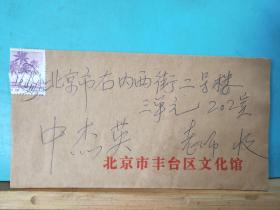 北京市右内西街二号楼
三单元 202室
申杰英 老师 收
北京市丰台区文化馆